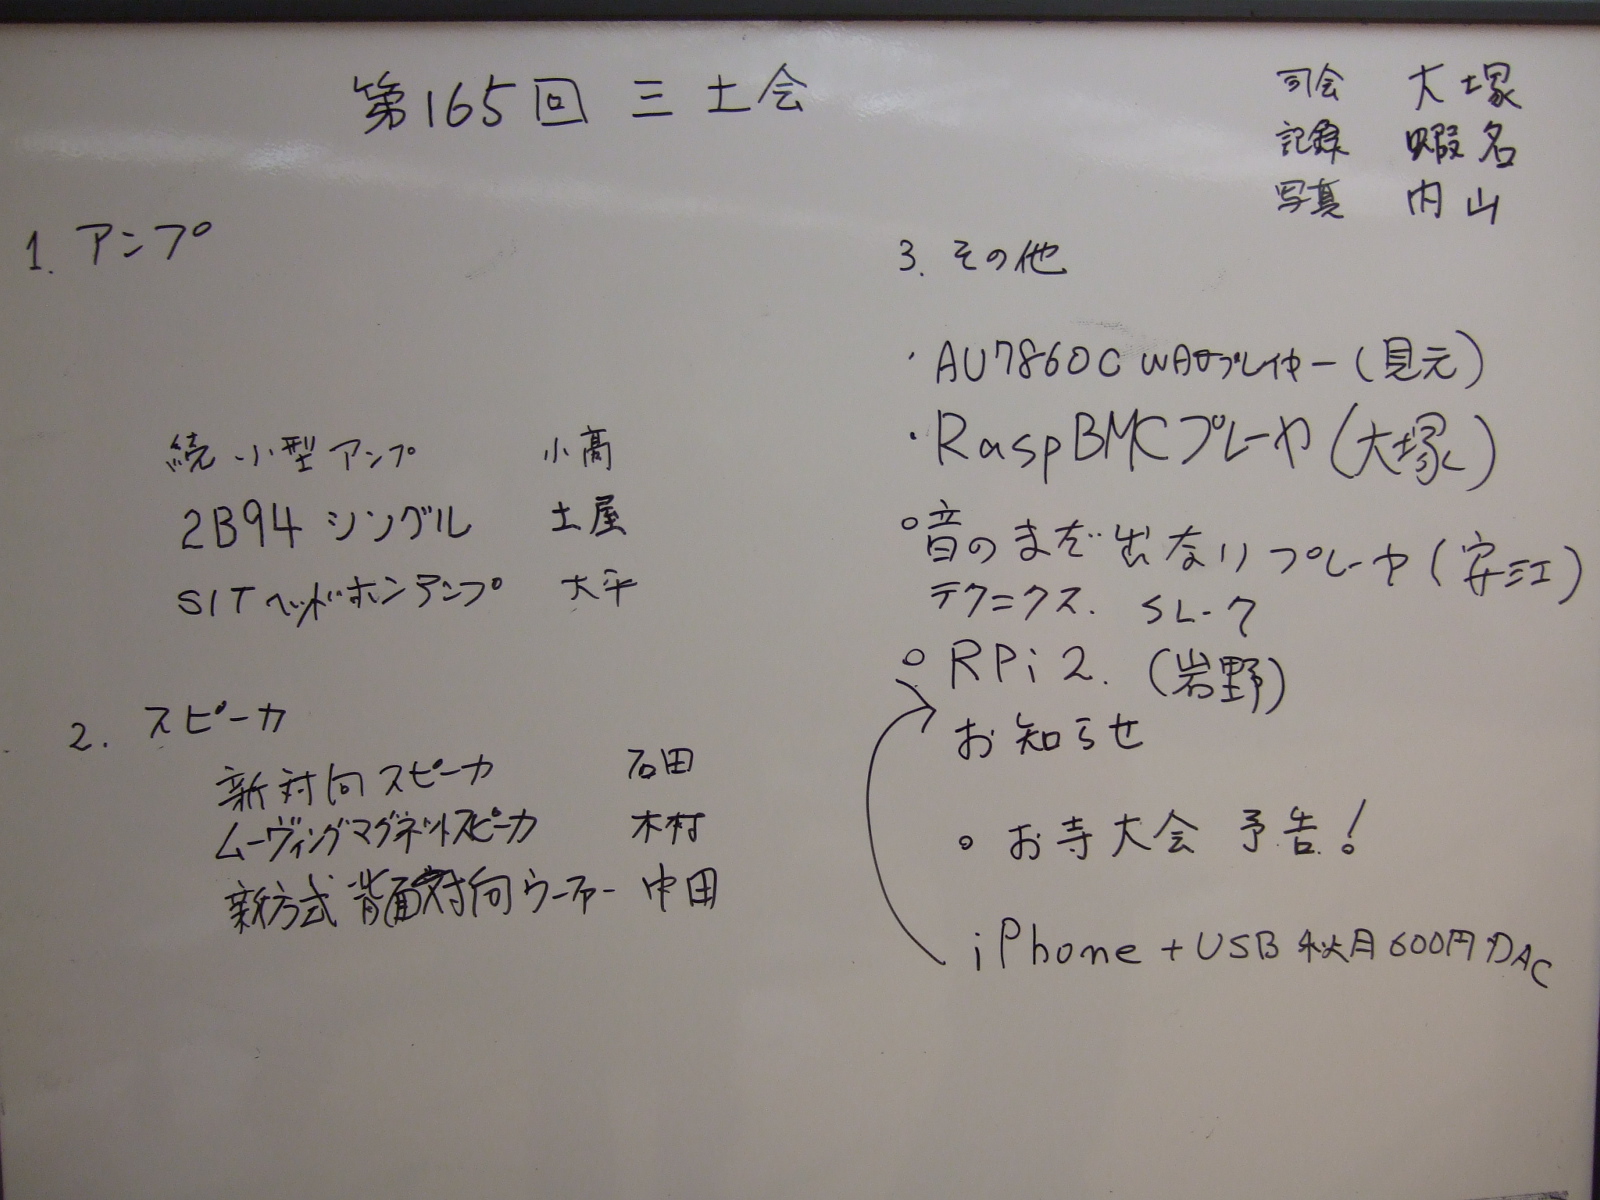 第165回 三土会
司会 大塚
記録 蝦名
写真 内山
1. アンプ
続 小型アンプ 小高
2B94 シングル 土屋
SITヘッドホンアンプ 大平
2. スピーカ
新対向スピーカ 石田
ムーヴィングマグネットスピーカ 木村
新方式背面対向ウーファー 中田
3. その他
・AU7860C WAVプレイヤー(見元)
・RaspBMCプレーヤ(大塚)
○音のまだ出ないプレーヤ(安江)
テクニクス. SL-7
○RPi2. (岩野)
お知らせ
○お寺大会 予告!
iPhone+USB 秋月600円DAC